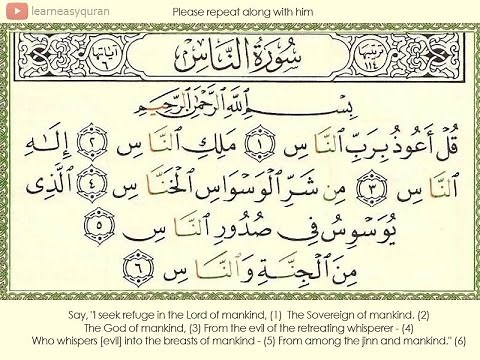 learneasyquran
Please repeat along with him
آياتها ٦ سُورَةُ النَّاسِ ترتيبها ١١٤
بِسْمِ ٱللَّهِ ٱلرَّحْمَٰنِ ٱلرَّحِيمِ
قُلْ أَعُوذُ بِرَبِّ ٱلنَّاسِ ١ مَلِكِ ٱلنَّاسِ ٢ إِلَٰهِ
ٱلنَّاسِ ٣ مِن شَرِّ ٱلْوَسْوَاسِ ٱلْخَنَّاسِ ٤ ٱلَّذِى
يُوَسْوِسُ فِى صُدُورِ ٱلنَّاسِ ٥
مِنَ ٱلْجِنَّةِ وَٱلنَّاسِ ٦
Say, "I seek refuge in the Lord of mankind, (1) The Sovereign of mankind. (2)
The God of mankind, (3) From the evil of the retreating whisperer - (4)
Who whispers [evil] into the breasts of mankind - (5) From among the jinn and mankind." (6)